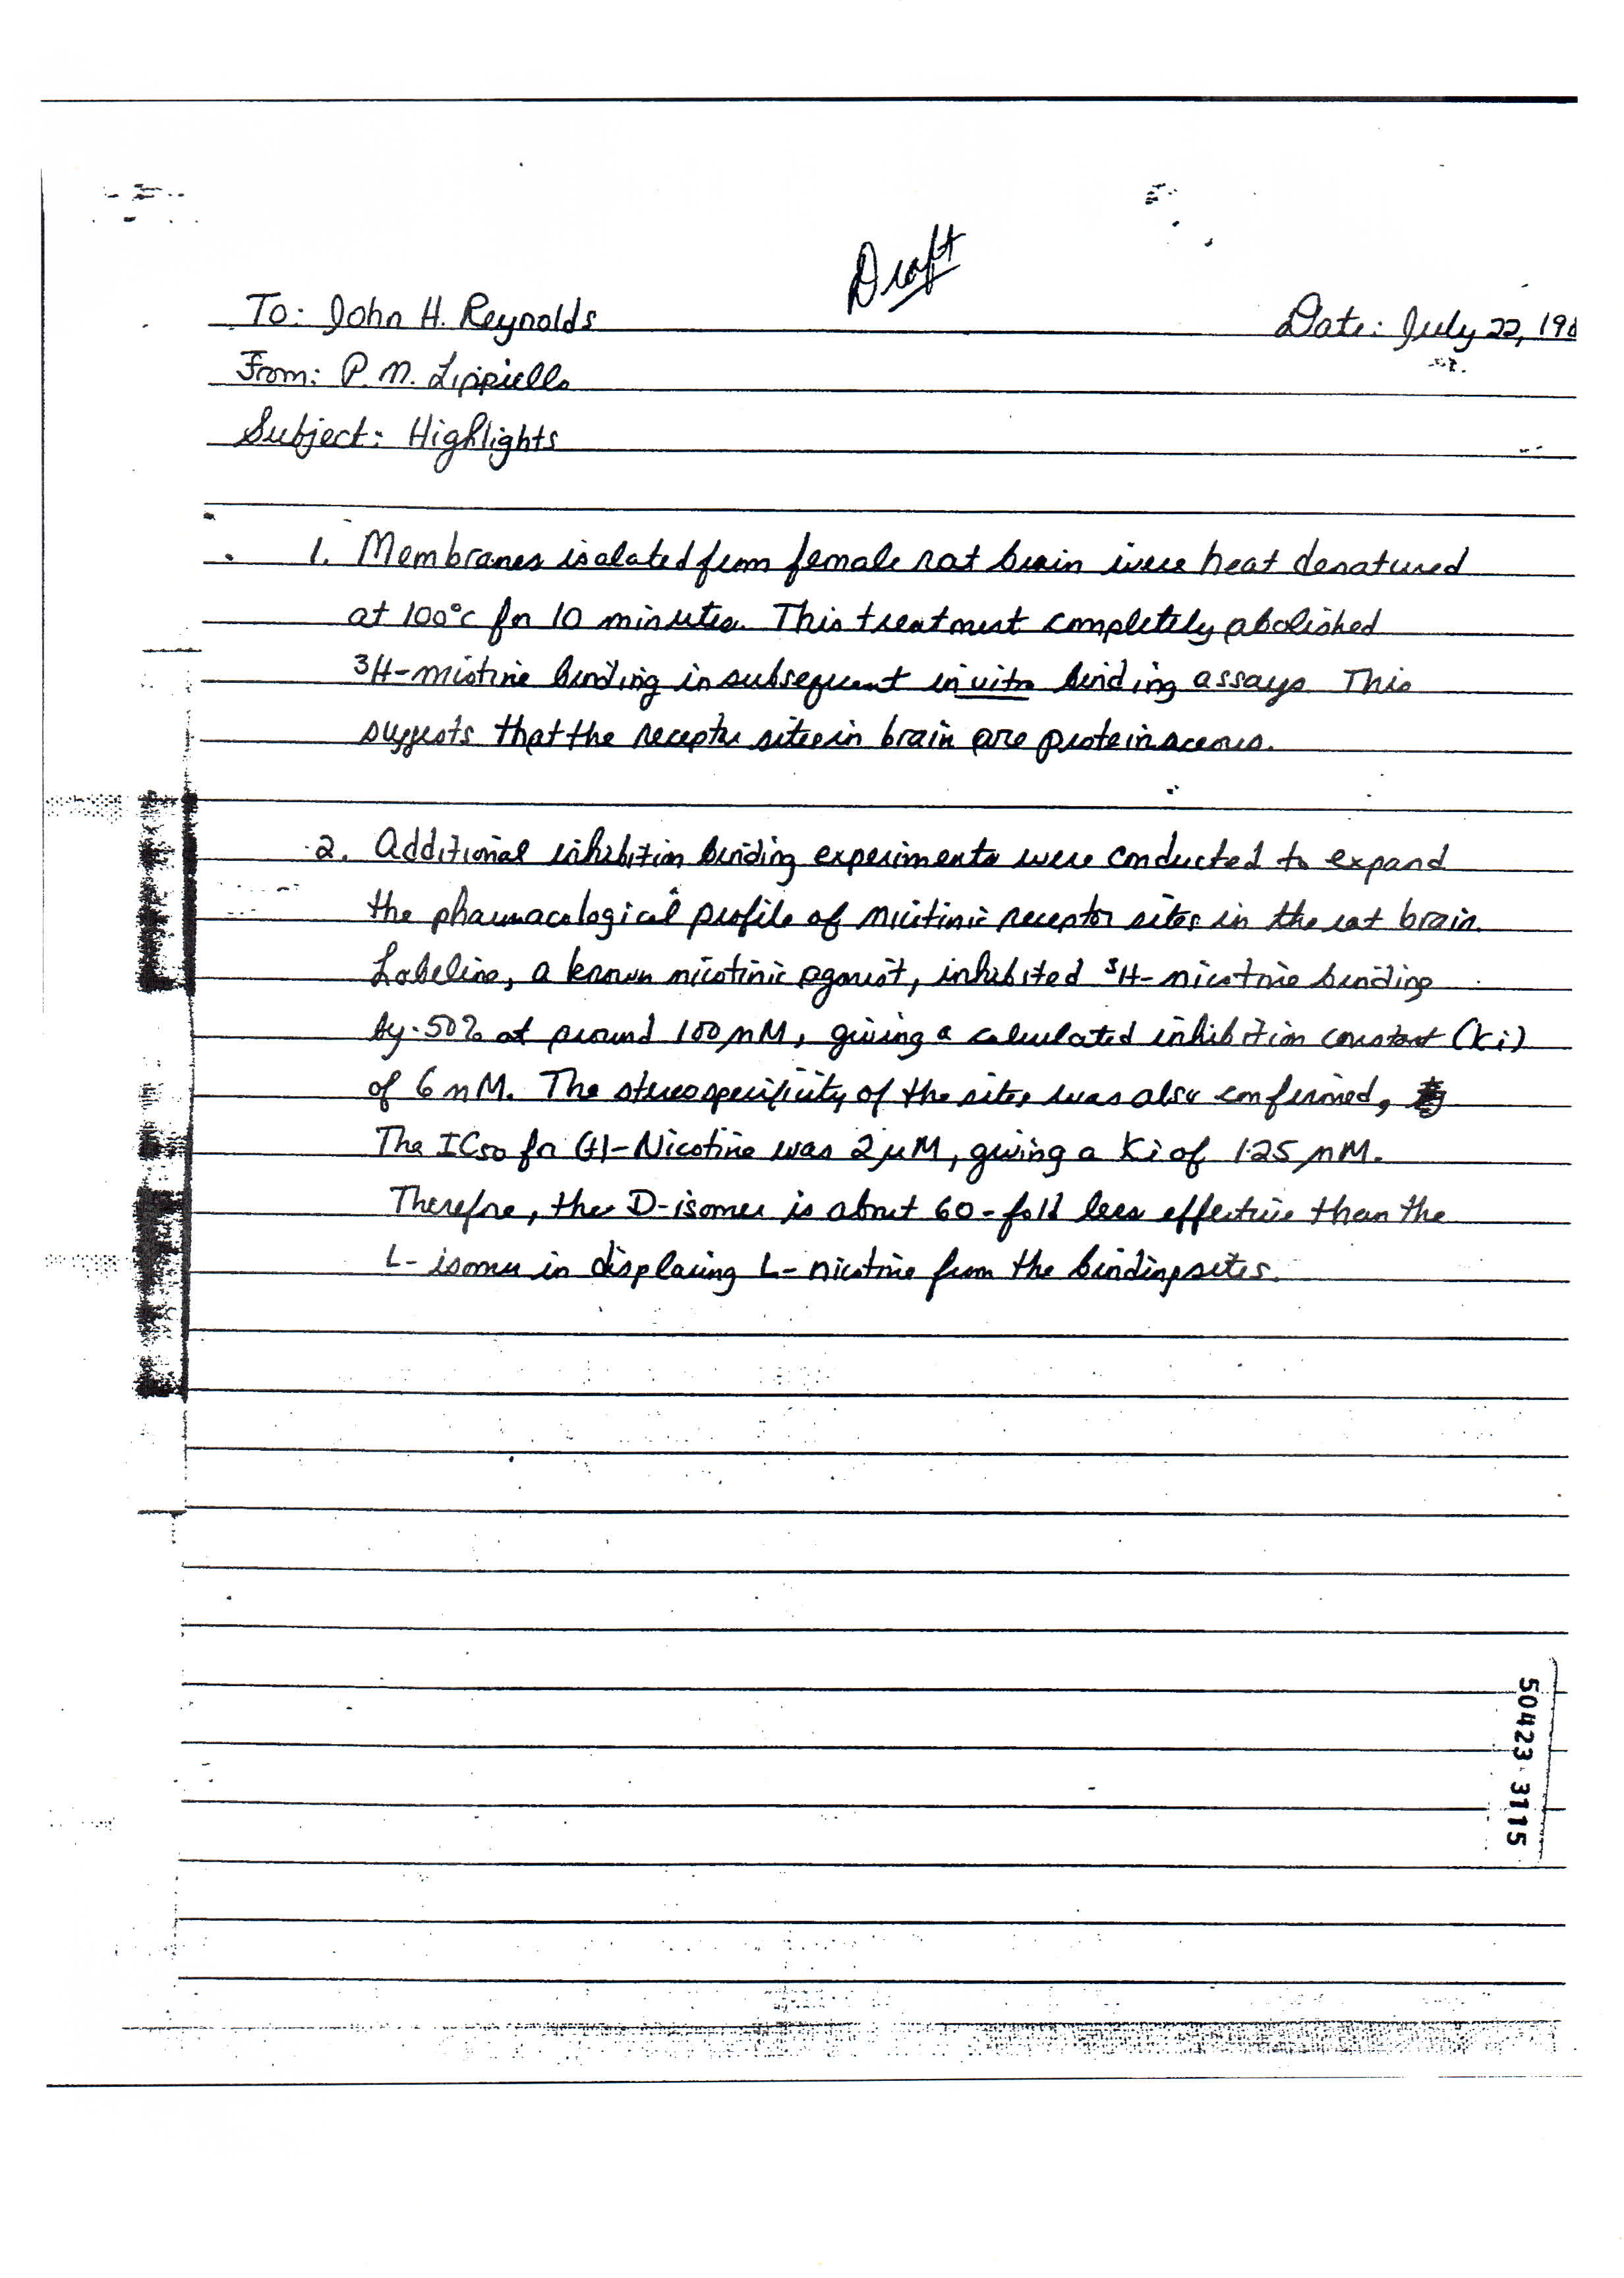 Draft
To: John H. Reynolds Date: July 22, 198
From: P. M. Lippiello
Subject: Highlights
1. Membranes isolated from female rat brain were heat denatured
at 100°C for 10 minutes. This treatment completely abolished
³H-nicotine binding in subsequent in vitro binding assays. This
suggests that the receptor sites in brain are proteinaceous.
2. Additional inhibition binding experiments were conducted to expand
the pharmacological profile of nicotinic receptor sites in the rat brain.
Lobeline, a known nicotinic agonist, inhibited ³H-nicotine binding
by 50% at around 100 nM, giving a calculated inhibition constant (Ki)
of 6 nM. The stereospecificity of the sites was also confirmed,
The IC50 for (+)-Nicotine was 2 µM, giving a Ki of 125 nM.
Therefore, the D-isomer is about 60-fold less effective than the
L-isomer in displacing L-nicotine from the binding sites.
50423 3115